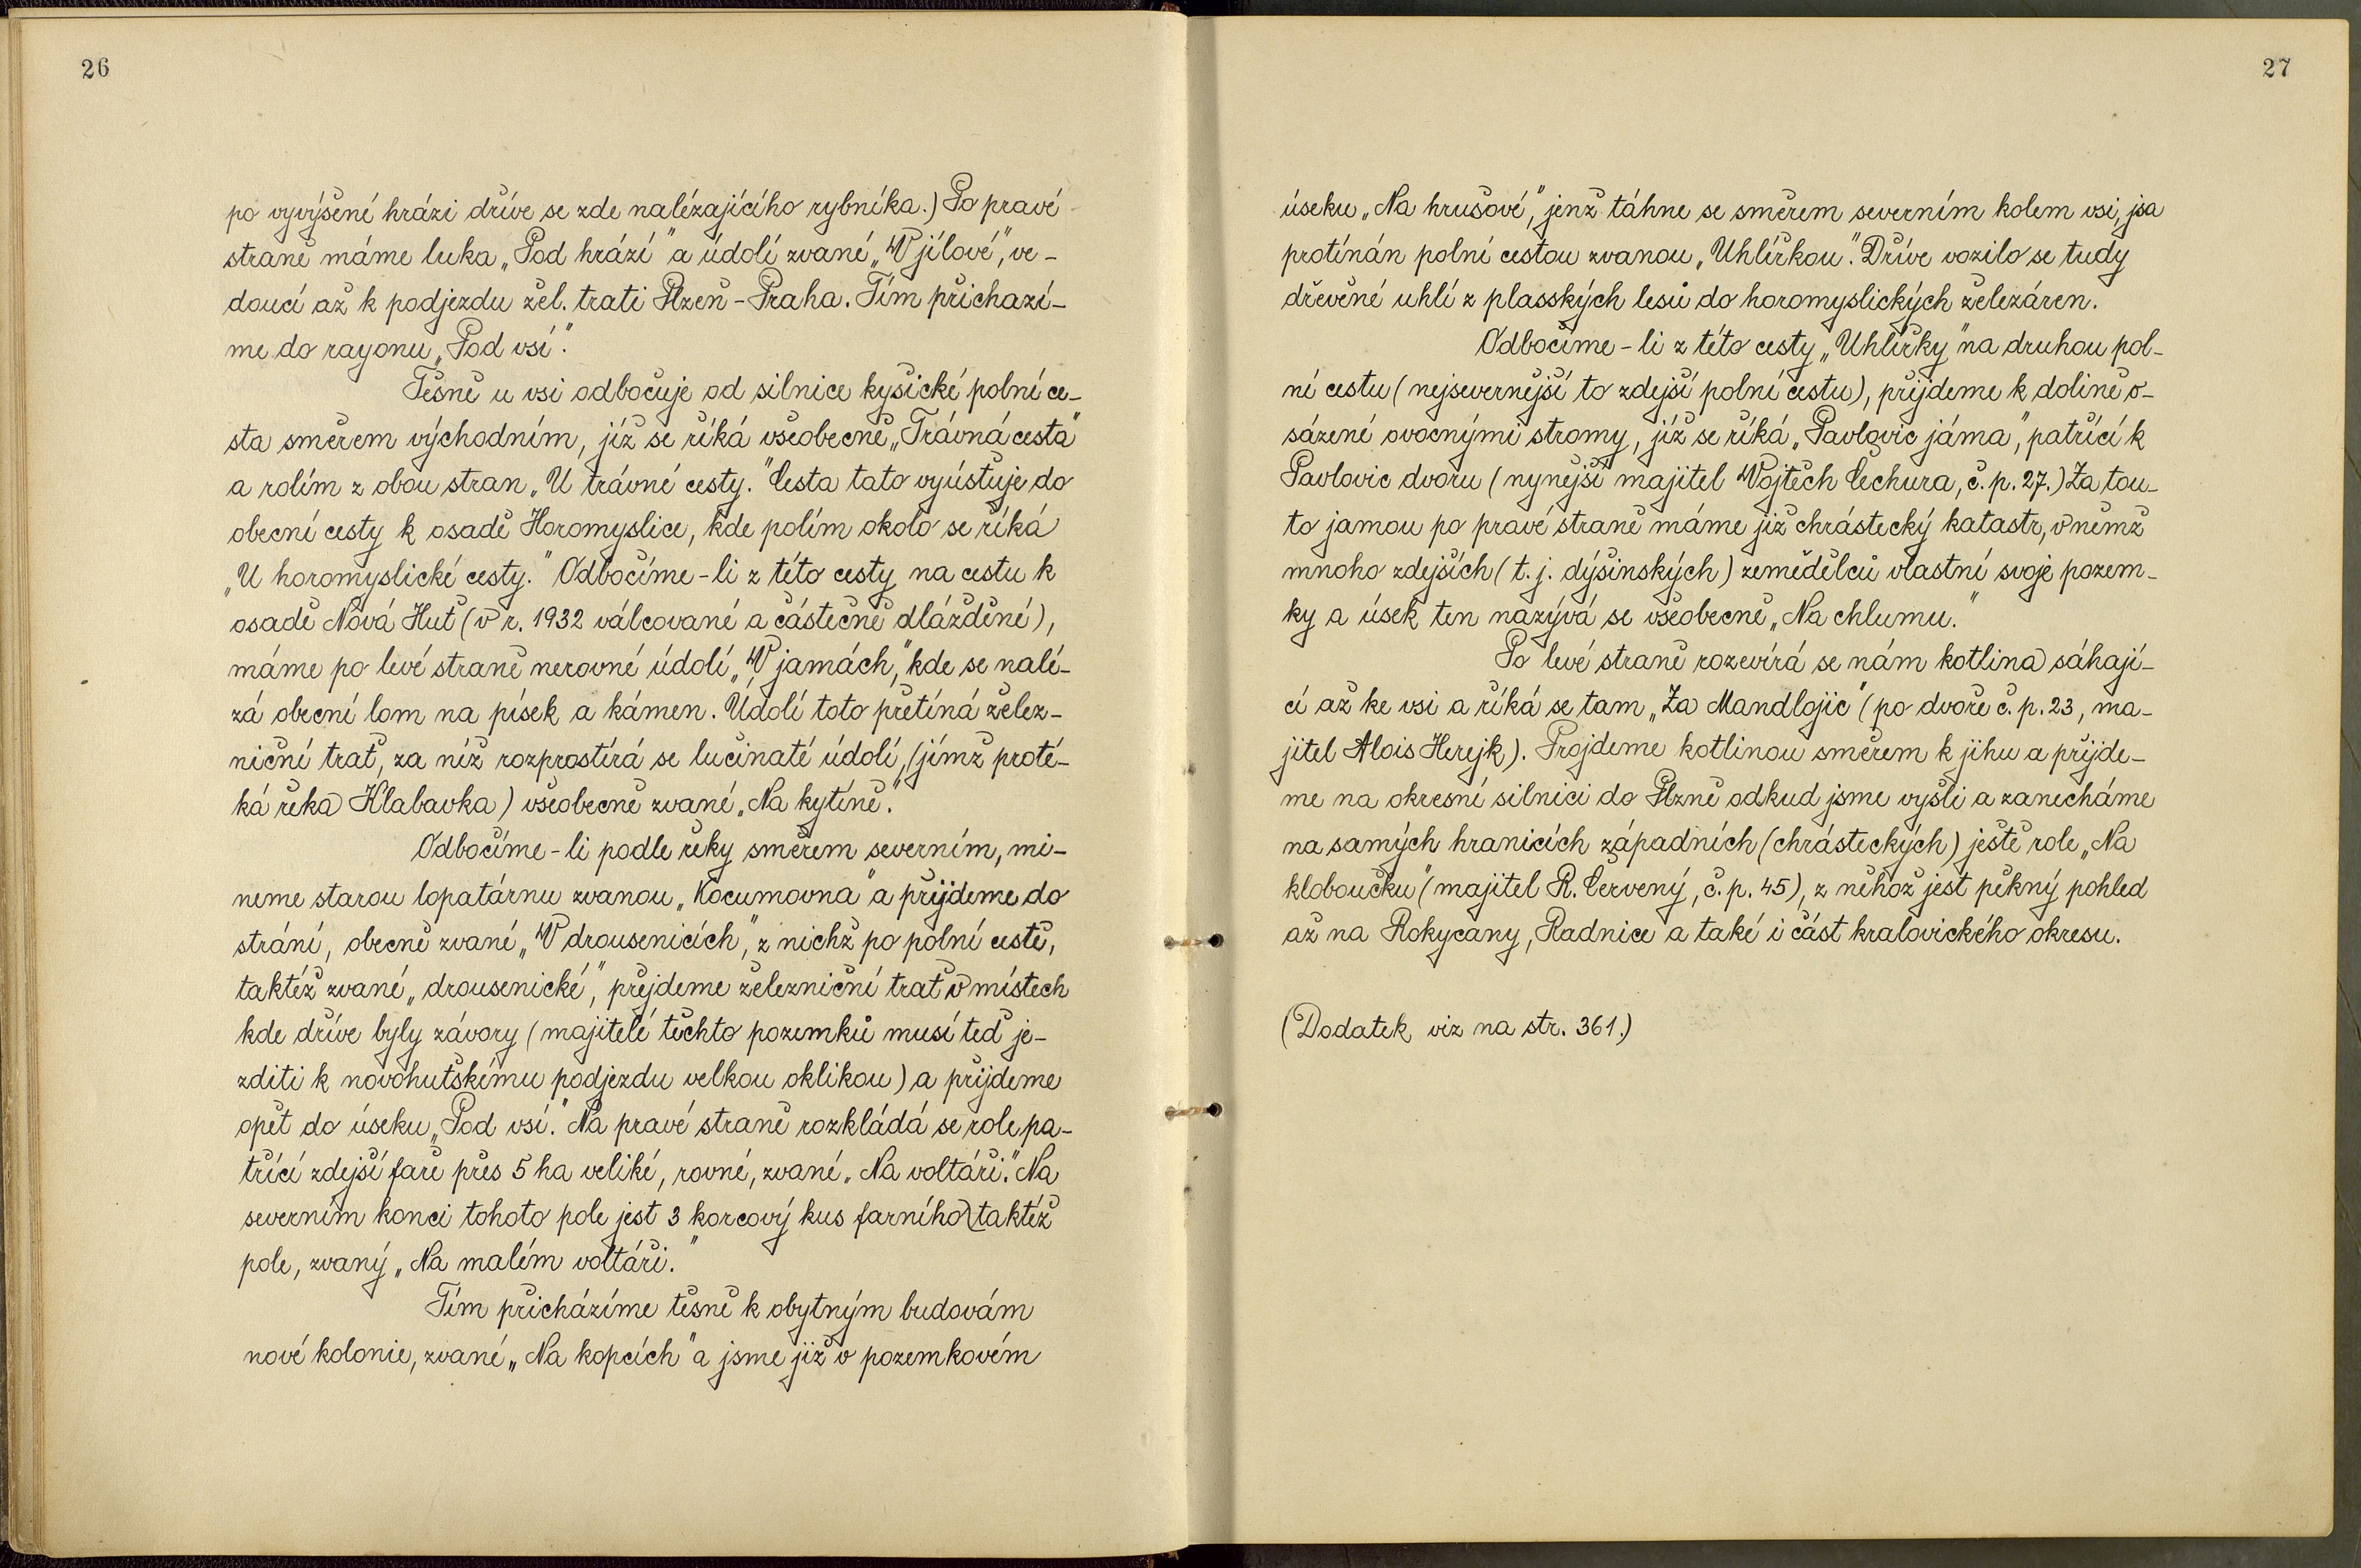 26
po vyvýšené hrázi dříve se zde nalézajícího rybníka.) Po pravé
straně máme luka „Pod hrází" a údolí zvané „V jílové", ve-
doucí až k podjezdu žel. trati Plzeň - Praha. Tím přichází-
me do rayonu „Pod vsí".
Těsně u vsi odbočuje od silnice kyšické polní ce-
sta směrem východním, jíž se říká všeobecně „Trávná cesta"
a rolím z obou stran „U trávné cesty." Cesta tato vyúsťuje do
obecní cesty k osadě Horomyslice, kde polím okolo se říká
„U horomyslické cesty." Odbočíme-li z této cesty na cestu k
osadě Nová Huť (v r. 1932 válcované a částečně dlážděné),
máme po levé straně nerovné údolí „V jamách", kde se nalé-
zá obecní lom na písek a kámen. Údolí toto přetíná želez-
niční trať, za níž rozprostírá se lučinaté údolí, (jímž proté-
ká řeka Klabavka) všeobecně zvané „Na kytíně".
Odbočíme-li podle řeky směrem severním, mi-
neme starou lopatárnu zvanou „Kocumovna" a přijdeme do
strání, obecně zvané „V drousenicích", z nichž po polní cestě,
taktéž zvané „drousenické", přejdeme železniční trať v místech
kde dříve byly závory (majitelé těchto pozemků musí teď je-
zditi k novohuťskému podjezdu velkou oklikou) a přijdeme
opět do úseku „Pod vsí." Na pravé straně rozkládá se role pa-
třící zdejší faře přes 5 ha veliké, rovné, zvané „Na voltáři." Na
severním konci tohoto pole jest 3 korcový kus farního taktéž
pole, zvaný „Na malém voltáři."
Tím přicházíme těsně k obytným budovám
nové kolonie, zvané „Na kopcích" a jsme již v pozemkovém
27
úseku „Na hrušové", jenž táhne se směrem severním kolem vsi, jsa
protínán polní cestou zvanou „Uhlířkou". Dříve vozilo se tudy
dřevěné uhlí z plasských lesů do horomyslických železáren.
Odbočíme-li z této cesty „Uhlířky" na druhou pol-
ní cestu (nejsevernější to zdejší polní cestu), přijdeme k dolině o-
sázené ovocnými stromy, jíž se říká „Pavlovic jáma", patřící k
Pavlovic dvoru (nynější majitel Vojtěch Čechura, č. p. 27.) Za tou-
to jamou po pravé straně máme již chrástecký katastr, v němž
mnoho zdejších (t. j. dýšinských) zemědělců vlastní svoje pozem-
ky a úsek ten nazývá se všeobecně „Na chlumu."
Po levé straně rozevírá se nám kotlina sáhají-
cí až ke vsi a říká se tam „Za Mandlojic" (po dvoře č. p. 23, ma-
jitel Alois Herejk). Projdeme kotlinou směrem k jihu a přijde-
me na okresní silnici do Plzně odkud jsme vyšli a zanecháme
na samých hranicích západních (chrásteckých) ještě role „Na
kloboučku" (majitel R. Červený, č. p. 45), z něhož jest pěkný pohled
až na Rokycany, Radnice a také i část kralovického okresu.
(Dodatek viz na str. 361.)